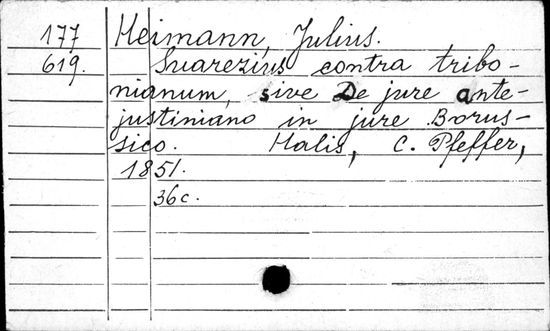 177 Heimann, Julius.
619. Suarezius contra tribo-
nianum, sive De jure ante-
justiniano in jure Borus-
sico. Halis, C. Pfeffer,
1851.
36c.